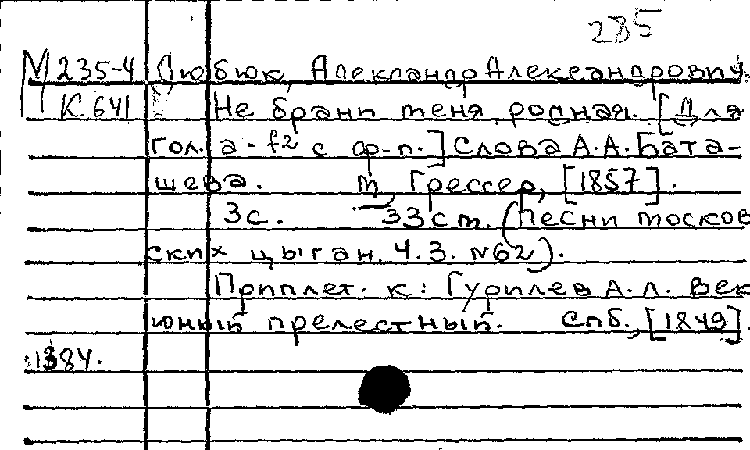 285
М 235-4 Дюбюк, Александр Александрович.
К 641 Не брани меня, родная. [Для
гол. a-f2 с ф-п.] Слова А.А. Бата-
шева. М, Грессер, [1857].
3с. 33см. (Песни москов
ских цыган. Ч.3. №62).
Приплет. к: Гурилев А.Л. Век
юный прелестный. Спб., [1849].
1384.